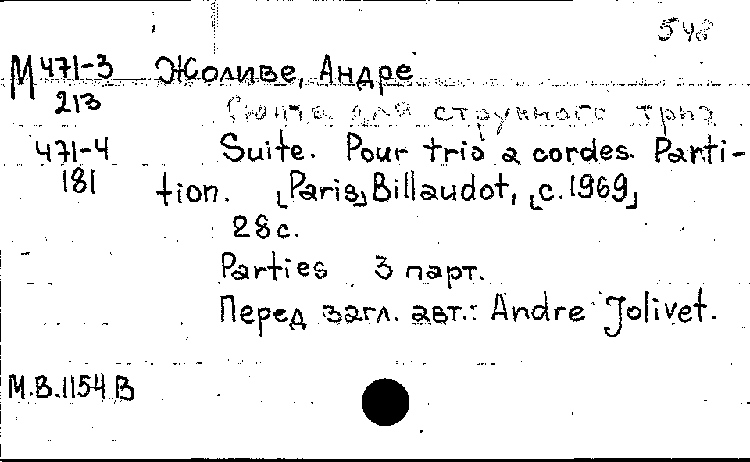 548
М 471-3 Жоливе, Андре
213
Сюита для струнного трио
471-4 Suite. Pour trio a cordes. Parti-
181 tion. [Paris] Billaudot, [c. 1969]
28 с.
Parties 3 парт.
Перед загл. авт.: Andre Jolivet.
М.В.1154 В